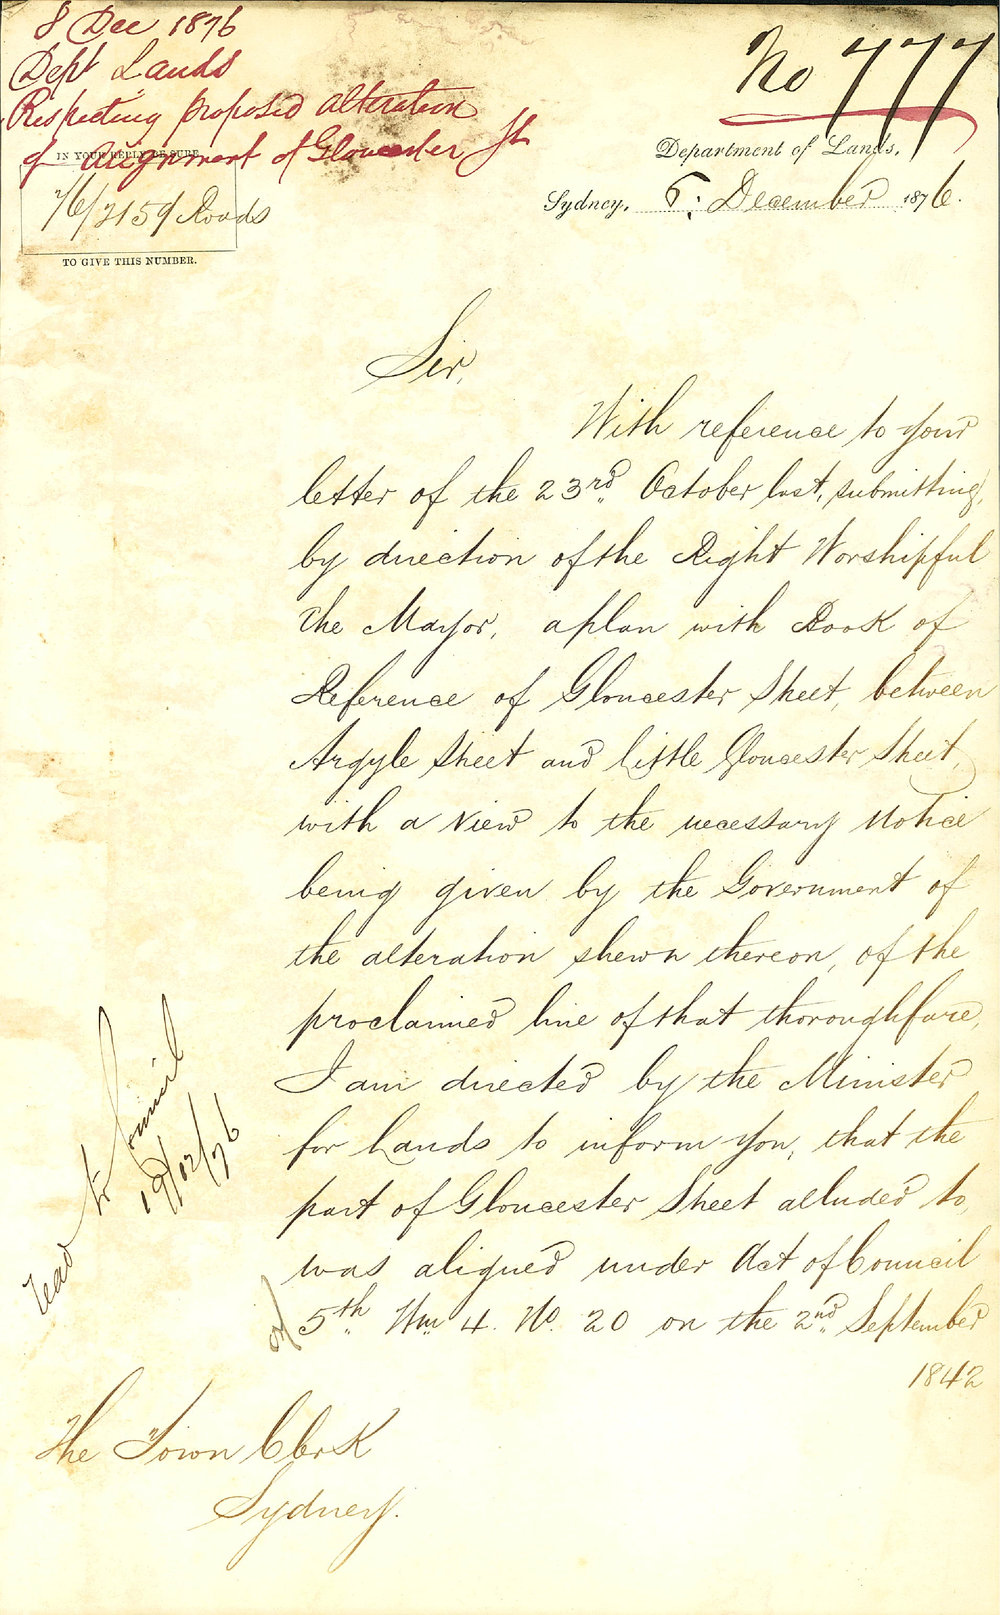 8 Dec 1876
Dept Lands
Respecting proposed alteration
of alignment of Gloucester St
No 777
IN YOUR REPLY BE SURE
76/2159 Roads
TO GIVE THIS NUMBER.
Department of Lands,
Sydney, 6: December 1876.
Sir,
With reference to your
letter of the 23rd. October last, submitting,
by direction of the Right Worshipful
the Mayor, a plan with Book of
Reference of Gloucester Street, between
Argyle Street and little Gloucester Street,
with a view to the necessary Notice
being given by the Government of
the alteration shewn thereon, of the
proclaimed line of that thoroughfare,
I am directed by the Minister
for Lands to inform you, that the
part of Gloucester Street alluded to,
was aligned under Act of Council
of 5th. Wm 4. No. 20 on the 2nd. September
1842
read to Council
19/12/76
The Town Clerk
Sydney.